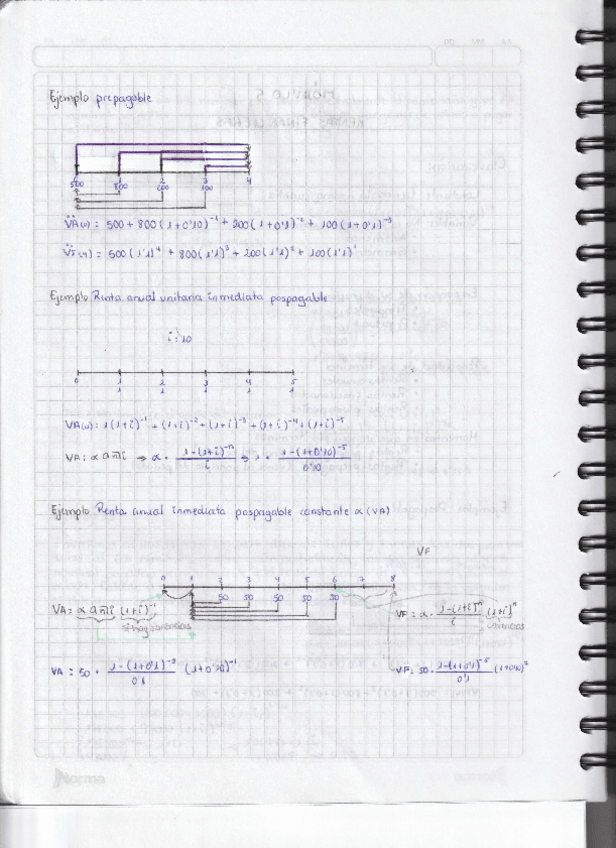 Ejemplo prepagable
500 800 200 100 4
V̈A(0) = 500 + 800 (1+0'10)⁻¹ + 200 (1+0'1)⁻² + 100 (1+0'1)⁻³
V̈F(4) = 500 (1'1)⁴ + 800 (1'1)³ + 200 (1'1)² + 100 (1'1)¹
Ejemplo Renta anual unitaria inmediata pospagable
i = 10
0 1 2 3 4 5
1 1 1 1 1
VA(0) = 1(1+i)⁻¹ + (1+i)⁻² + (1+i)⁻³ + (1+i)⁻⁴ + (1+i)⁻⁵
VA = α a n̅ i → α · 1-(1+i)⁻ⁿ / i → 1 · 1-(1+0'10)⁻⁵ / 0'10
Ejemplo Renta anual inmediata pospagable constante α (VA)
VF
0 1 2 3 4 5 6 7 8
50 50 50 50 50
VA = α a n̅ i (1+i)⁻¹
si hay carencias
VF = α · 1-(1+i)ⁿ / i (1+i)ⁿ
carencias
VA = 50 · 1-(1+0'1)⁻⁵ / 0'1 (1+0'10)⁻¹
VF = 50 · 1-(1+0'1)⁻⁵ / 0'1 (1+0'10)
Norma